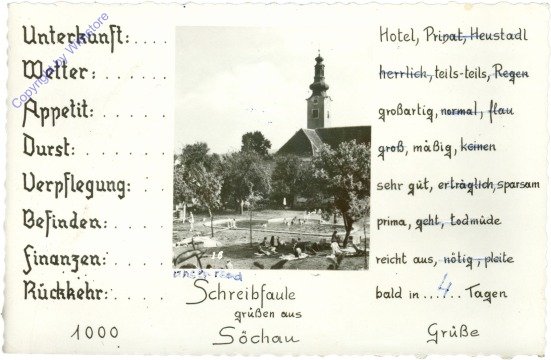 Unterkunft: . . . . Hotel, Privat, Heustadl
Wetter: . . . . . . herrlich, teils-teils, Regen
Appetit: . . . . . großartig, normal, flau
Durst: . . . . . . groß, mäßig, keinen
Verpflegung: . . . sehr gut, erträglich, sparsam
Befinden: . . . . prima, geht, todmüde
Finanzen: . . . . reicht aus, nötig, pleite
Rückkehr: . . . . bald in . . 4 . . Tagen
Schreibfaule
grüßen aus
1000 Söchau Grüße
Copyright by